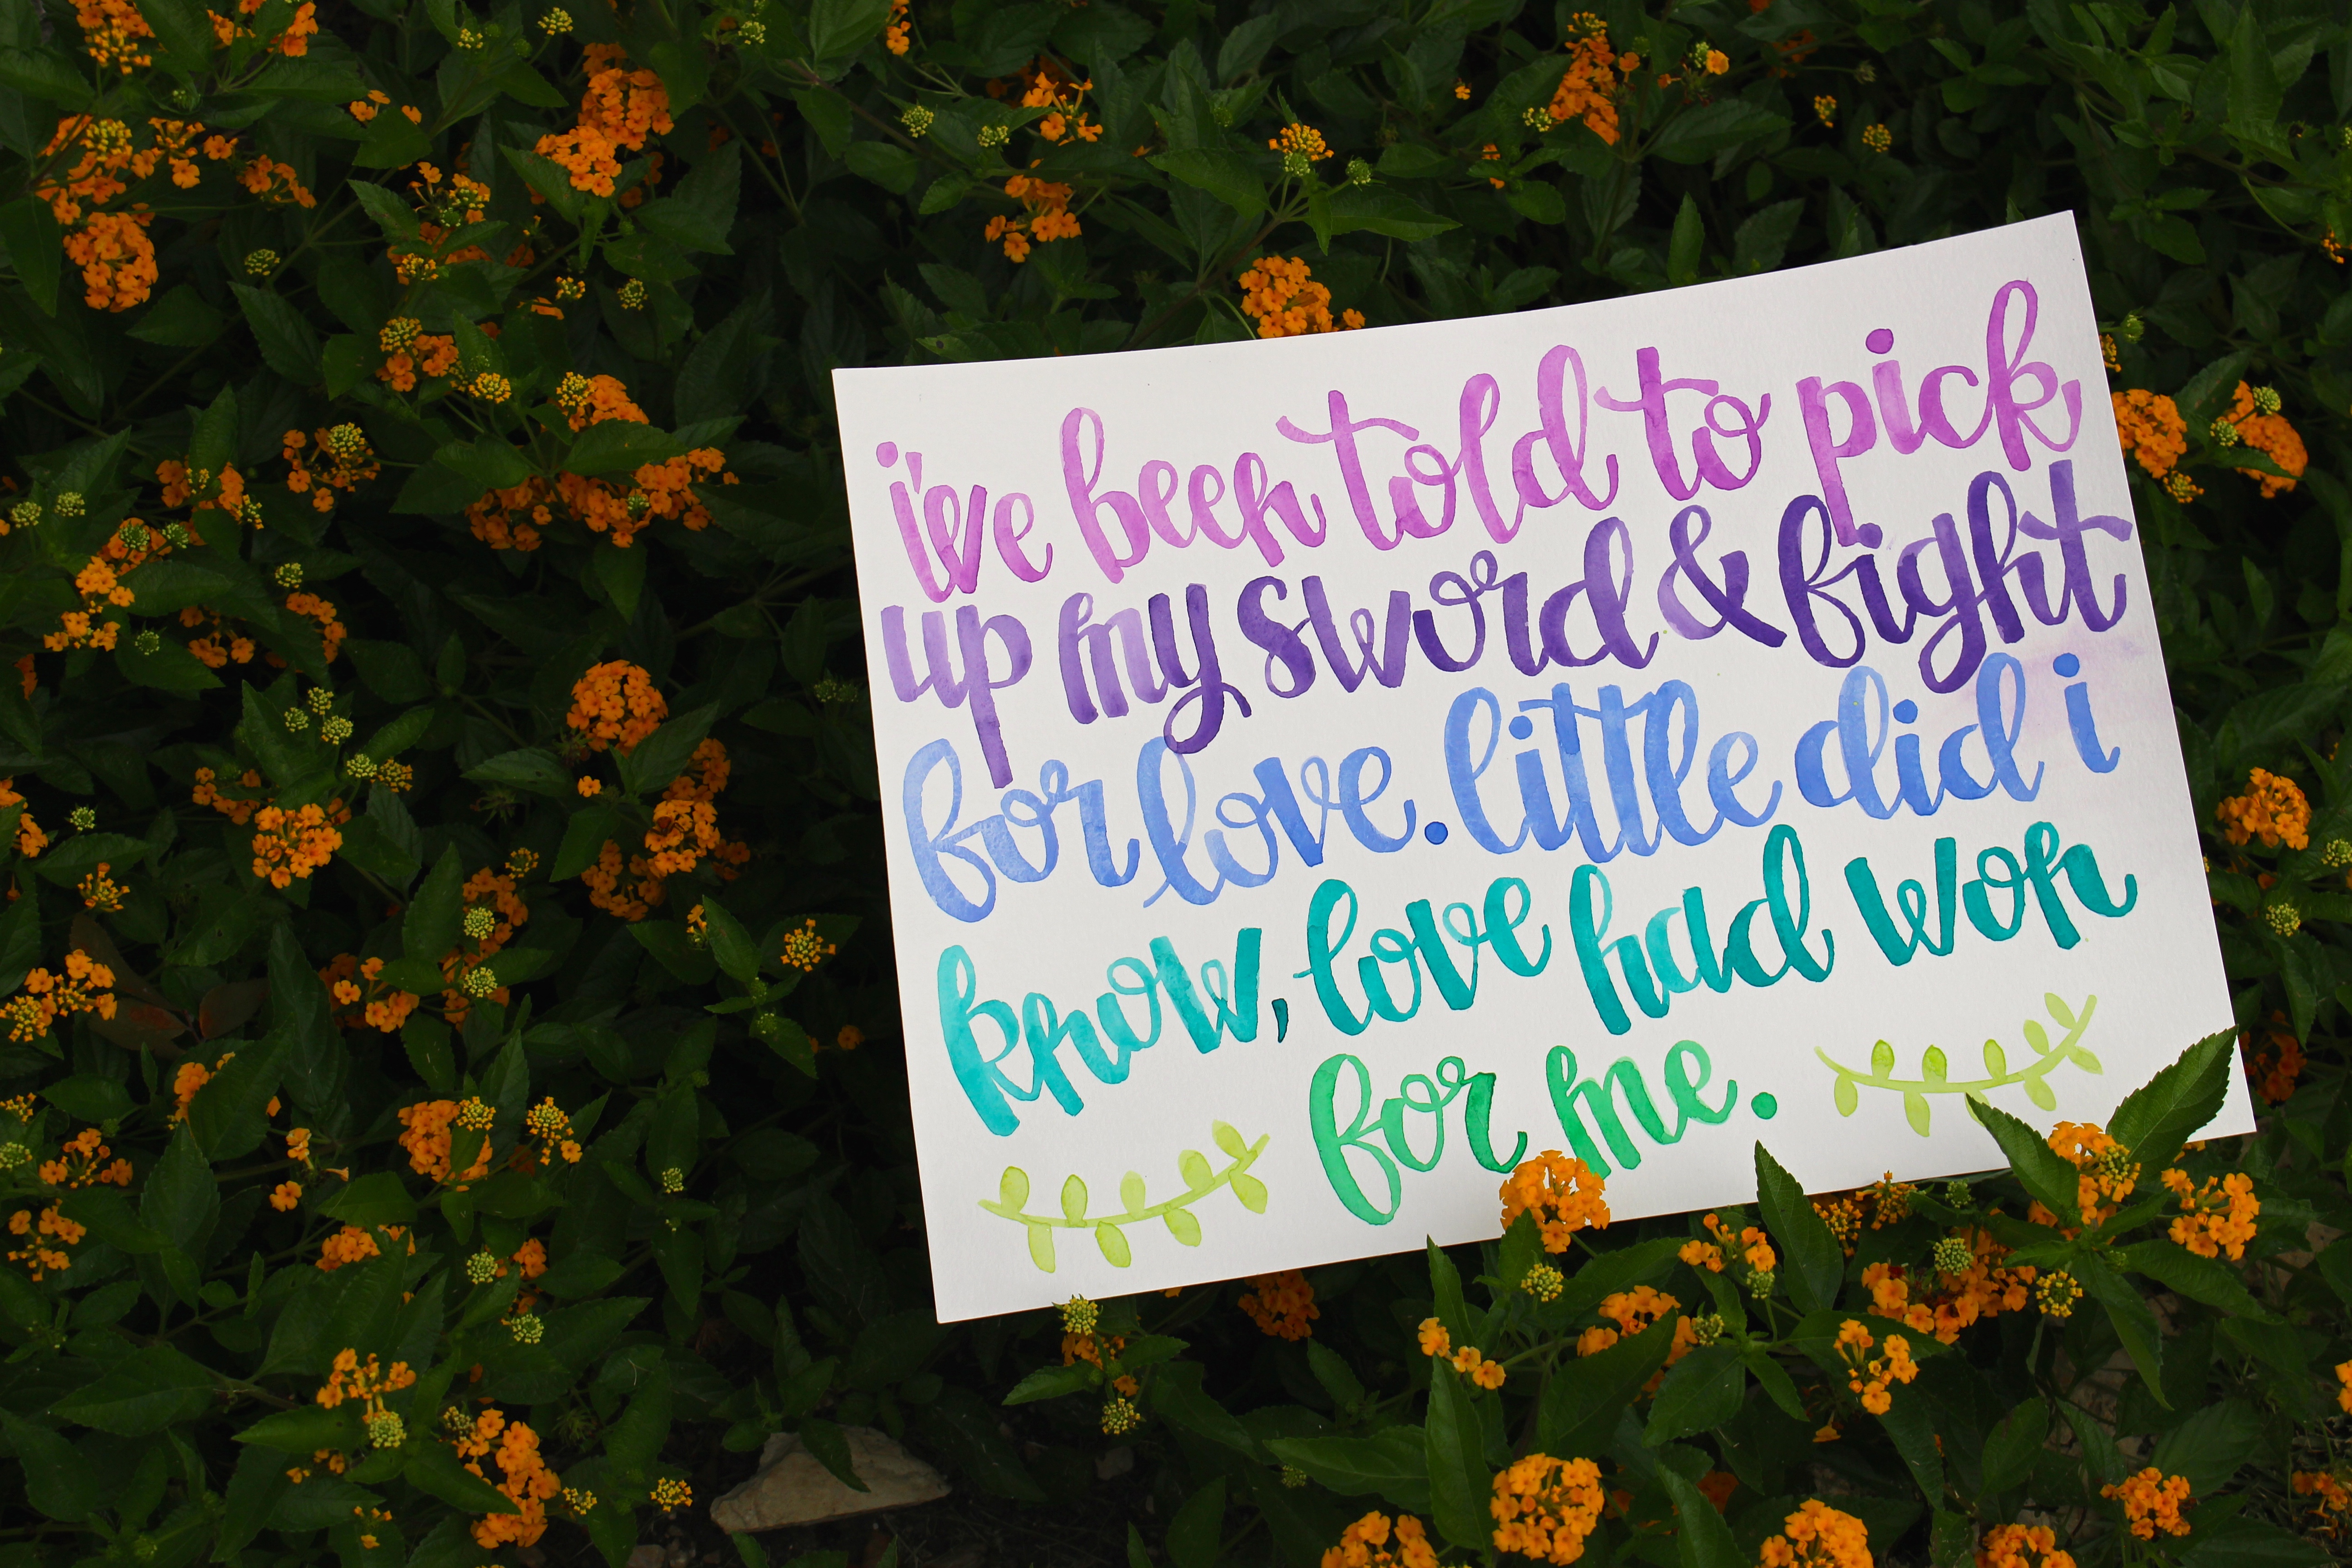 i've been told to pick
up my sword & fight
for love. little did i
know, love had won
for me.